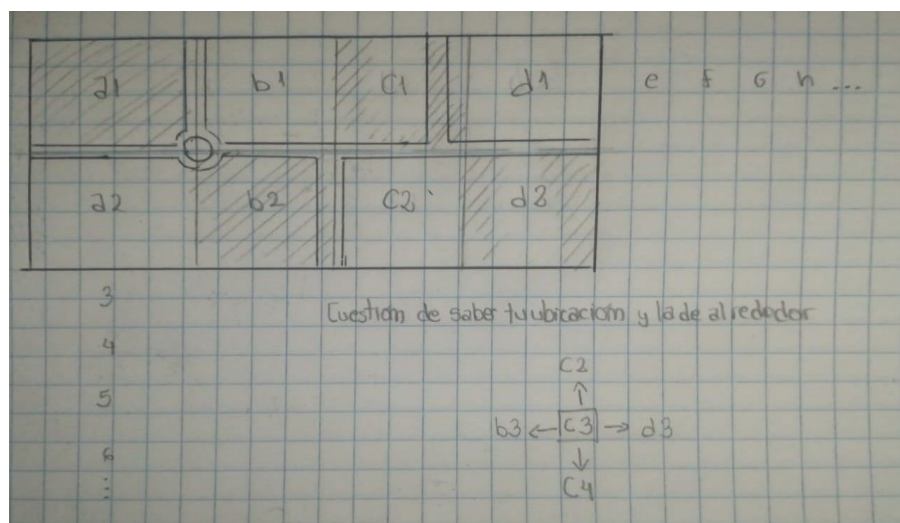 a1 b1 c1 d1 e f G h ...
a2 b2 C2 d2
3
Cuestion de saber tu ubicacion y la de alrededor
4
C2
↑
5
b3 ← C3 → d3
↓
6
C4
⋮